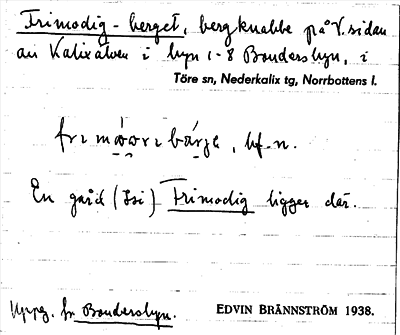 Frimodig-berget, bergknabbe på V. sidan
av Kalixälven i byn 1-8 Bondersbyn, i
Töre sn, Nederkalix tg, Norrbottens l.
bf. n.
En gård (Isi) Frimodig ligger där.
Uppg. fr Bondersbyn. EDVIN BRÄNNSTRÖM 1938.